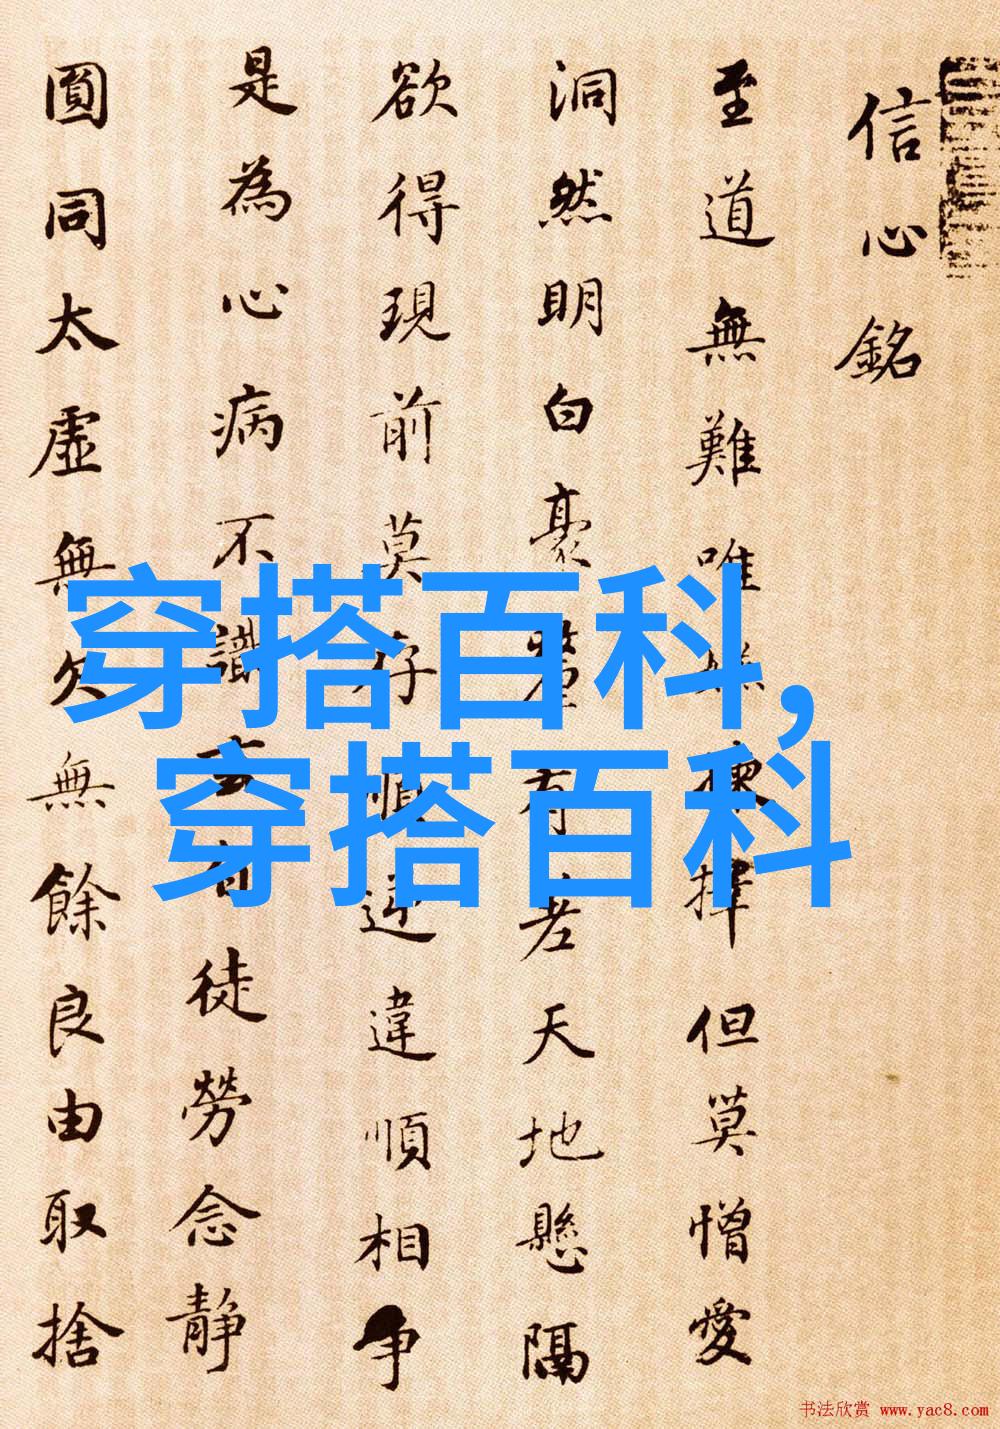 信心銘
至道無難唯無揀擇但莫憎愛
洞然明白豪釐有差天地懸隔
欲得現前莫存順逆違順相爭
是為心病不識玄旨徒勞念静
圓同太虛無欠無餘良由取捨
穿搭百科,
穿搭百科
书法欣赏 www.yac8.com